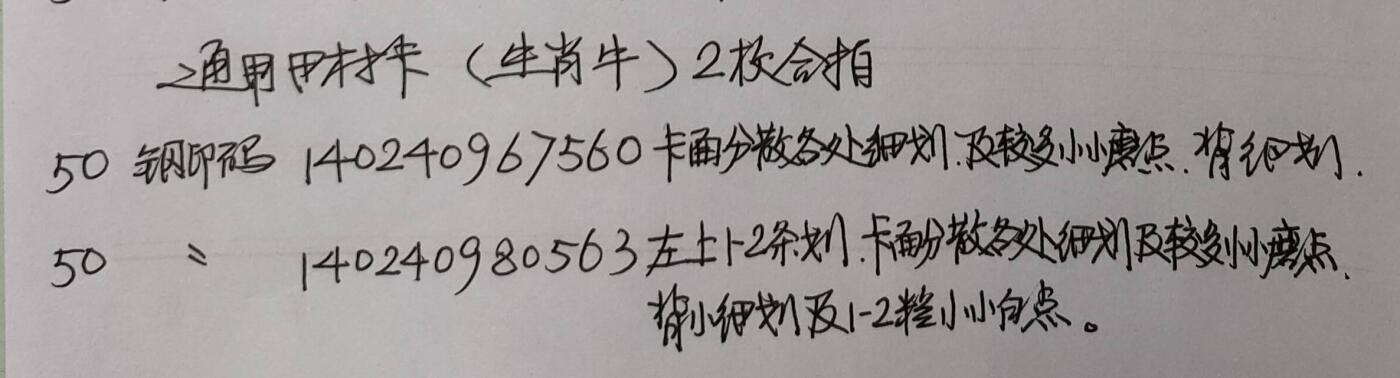 通用甲材卡（生肖牛）2枚合拍
50 钢印码 140240967560卡面分散各处细划.及较多小小磨点.背细划.
50 〃 140240980563左上1-2条划.卡面分散各处细划及较多小小磨点.
背小细划及1-2粒小小白点。